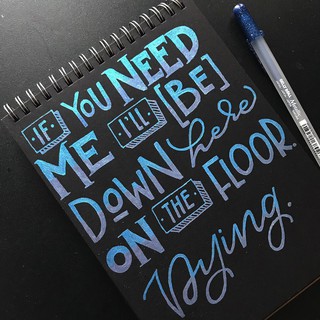 IF YOU NEED
ME I'LL [BE]
DOWN here
ON THE FLOOR.
Dying.